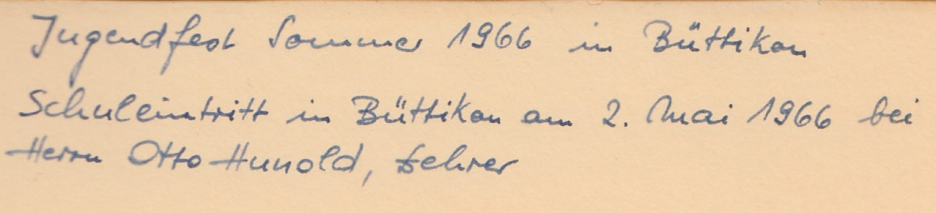 Jugendfest Sommer 1966 in Büttikon
Schuleintritt in Büttikon am 2. Mai 1966 bei
Herrn Otto Hunold, Lehrer